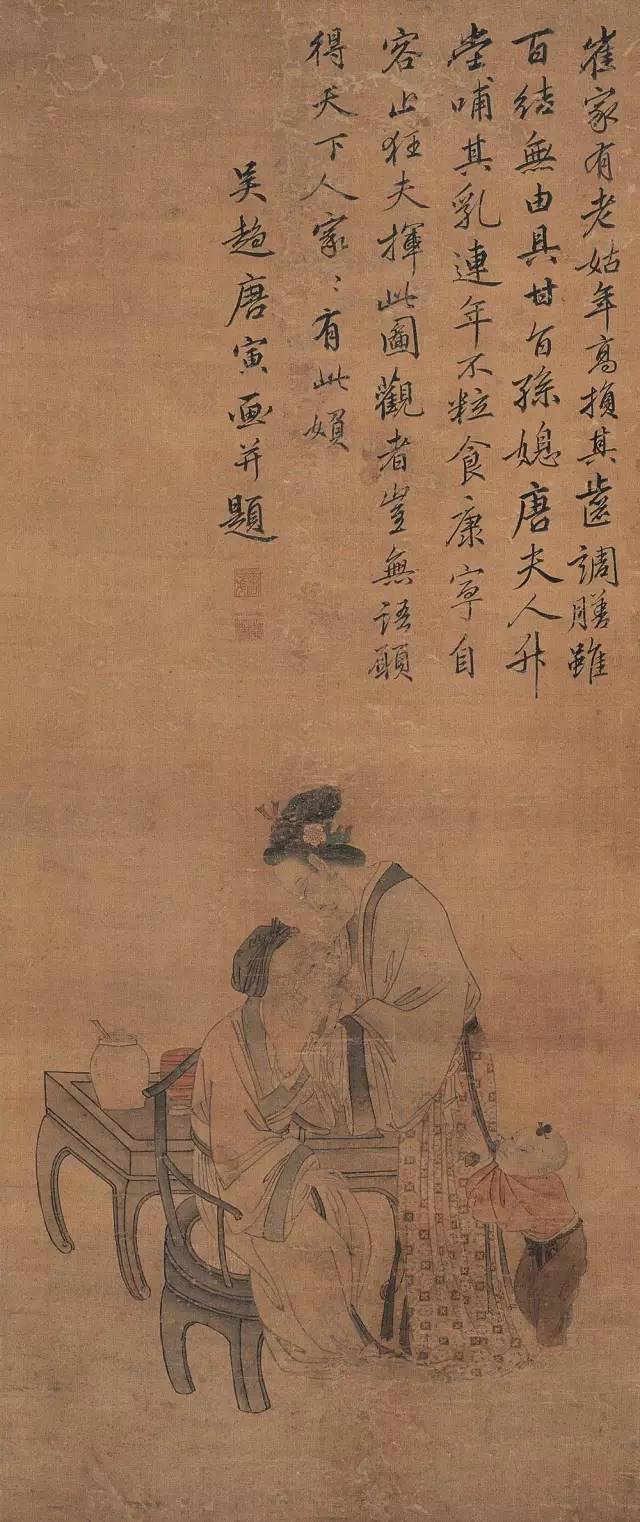 崔家有老姑年高損其齒調膳雖
百結無由具甘旨孫媳唐夫人升
堂哺其乳連年不粒食康寧自
容止狂夫揮此圖觀者豈無語願
得天下人家〻有此婦
吳趨唐寅畫并題